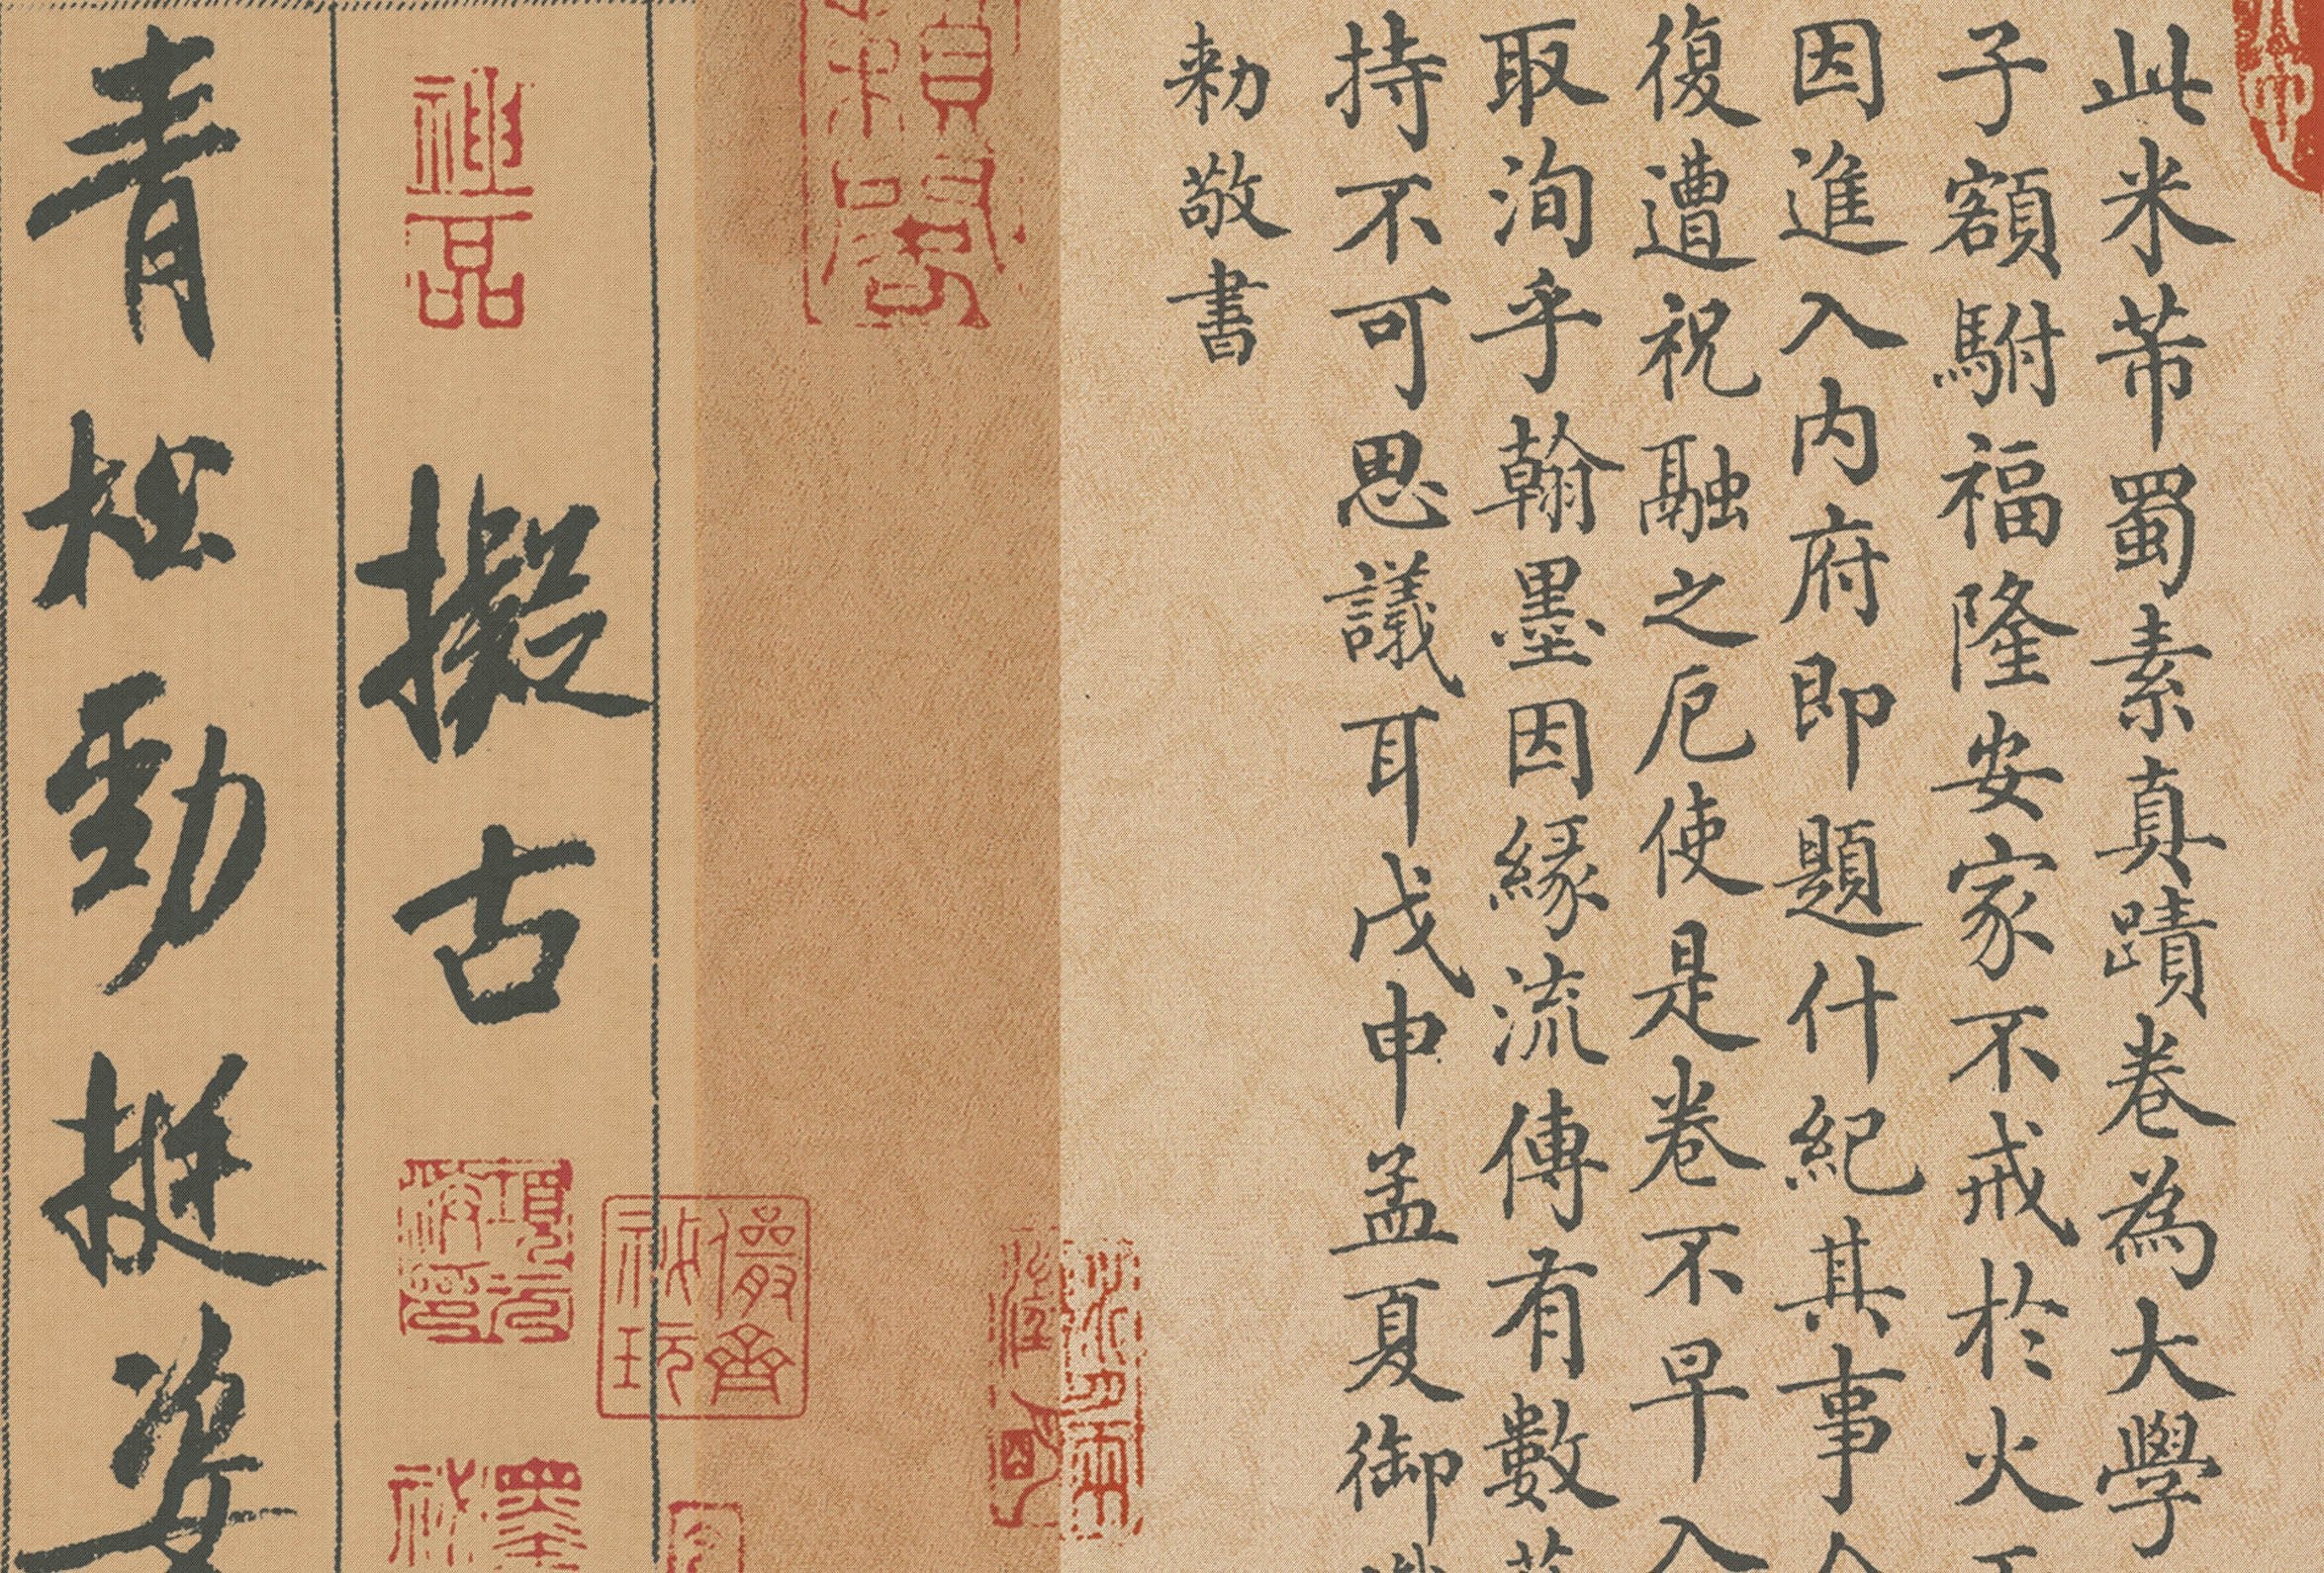 此米芾蜀素真蹟卷為大學
子額駙福隆安家不戒於火
因進入内府即題什紀其事
復遭祝融之厄使是卷不早入
取洵乎翰墨因緣流傳有數
持不可思議耳戊申孟夏御
勑敬書
儼齋秘玩
神品
擬古
項元汴印
青松勁挺姿